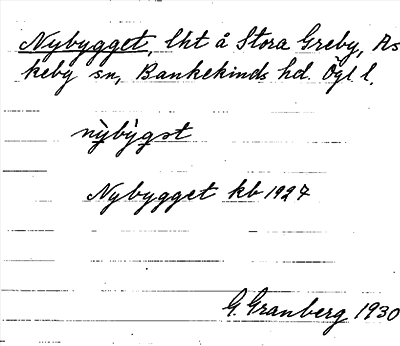 Nybygget, lht å Stora Greby, As
keby sn, Bankekinds hd. Ögl l.
nỳbỳgət
Nybygget kb 1927
G. Granberg 1930